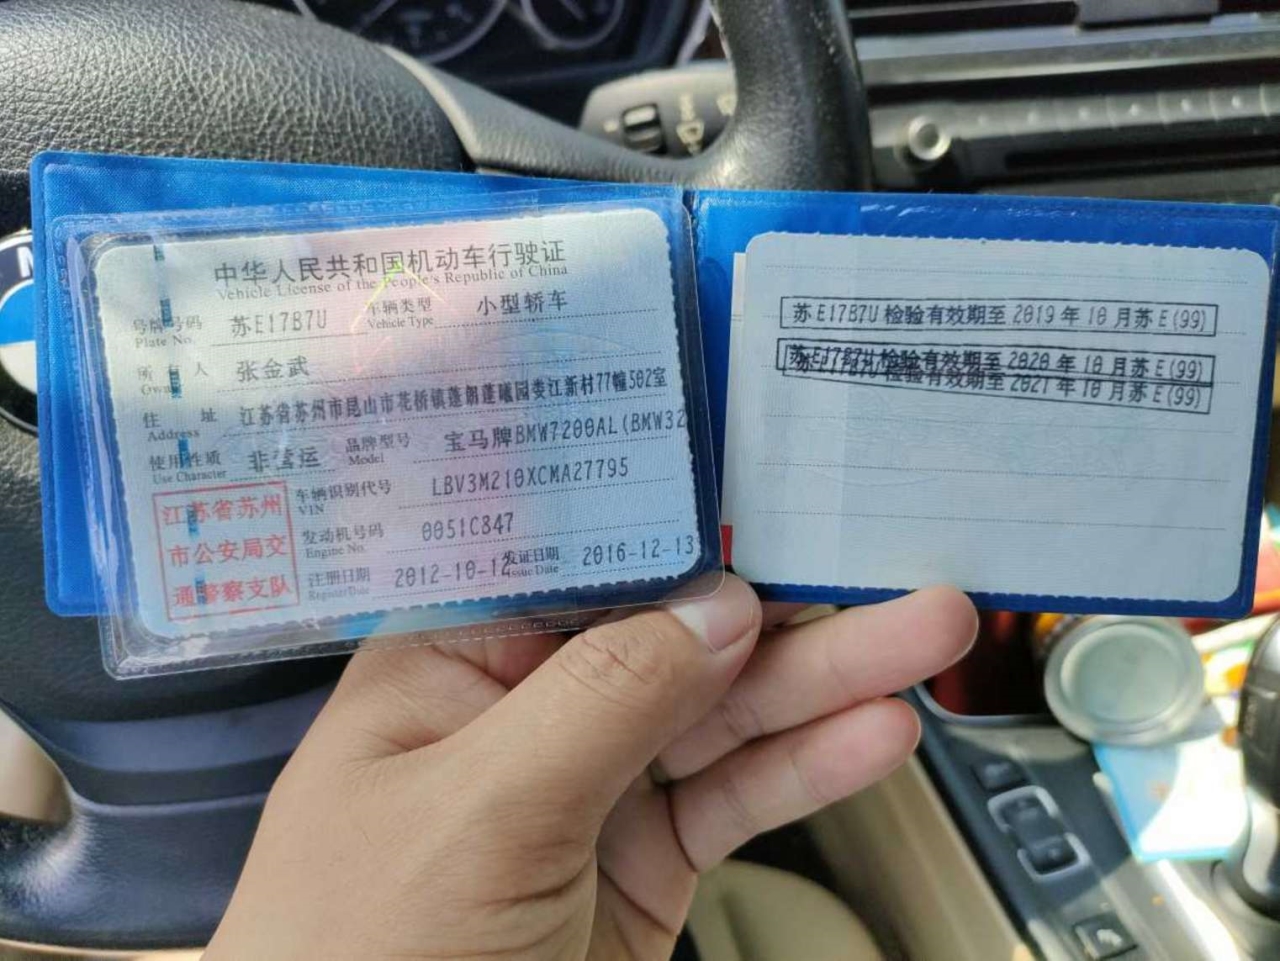 中华人民共和国机动车行驶证
Vehicle License of the People's Republic of China
号牌号码 苏E17B7U 车辆类型 小型轿车
Plate No. Vehicle Type
所有人 张金武
Owner
住址 江苏省苏州市昆山市花桥镇蓬朗蓬曦园娄江新村77幢502室
Address
使用性质 非营运 品牌型号 宝马牌BMW7200AL(BMW32
Use Character Model
车辆识别代号 LBV3M210XCMA27795
VIN
发动机号码 0051C847
Engine No.
注册日期 2012-10-12 发证日期 2016-12-13
Register Date Issue Date
江苏省苏州
市公安局交
通警察支队
苏E17B7U检验有效期至2019年10月苏E(99)
苏E17B7U检验有效期至2020年10月苏E(99)
苏E17B7U检验有效期至2021年10月苏E(99)